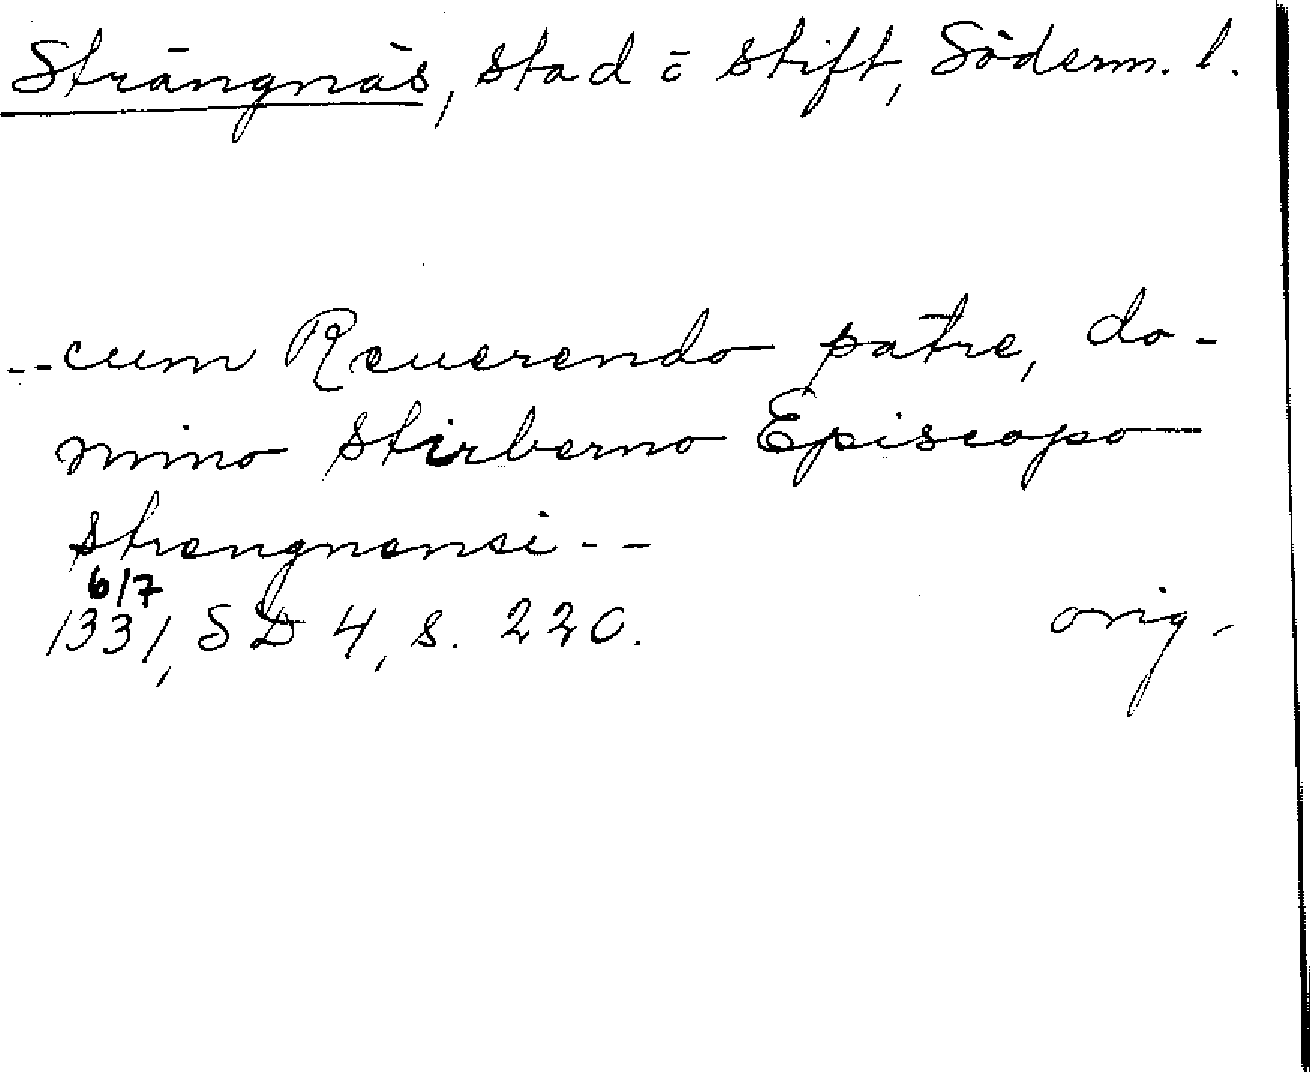 Strängnäs, stad o stift, Söderm. l.
--cum Reuerendo patre, do-
mino Stirberno Episcopo
strengnensi--
6/7
1331, SD 4, s. 220.
orig.